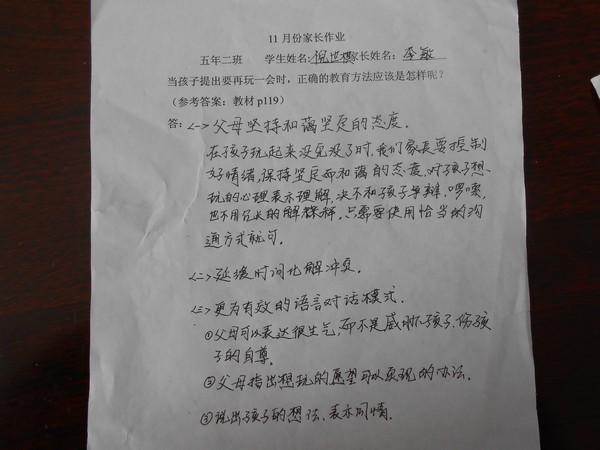 11月份家长作业
五年二班 学生姓名:倪世 家长姓名:李敏
当孩子提出要再玩一会时，正确的教育方法应该是怎样呢？
（参考答案：教材p119）
答:<一>父母坚持和蔼坚定的态度.
在孩子玩起来没完没了时,我们家长要控制
好情绪,保持坚定而和蔼的态度,对孩子想
玩的心理表示理解,决不和孩子争辩,啰嗦,
也不用冗长的解释.只需要使用恰当的沟
通方式就可.
<二>延缓时间化解冲突.
<三>更为有效的语言对话模式.
①父母可以表达很生气,而不是威吓孩子,伤孩
子的自尊.
②父母指出想玩的愿望可以实现的办法.
③说出孩子的想法,表示同情.